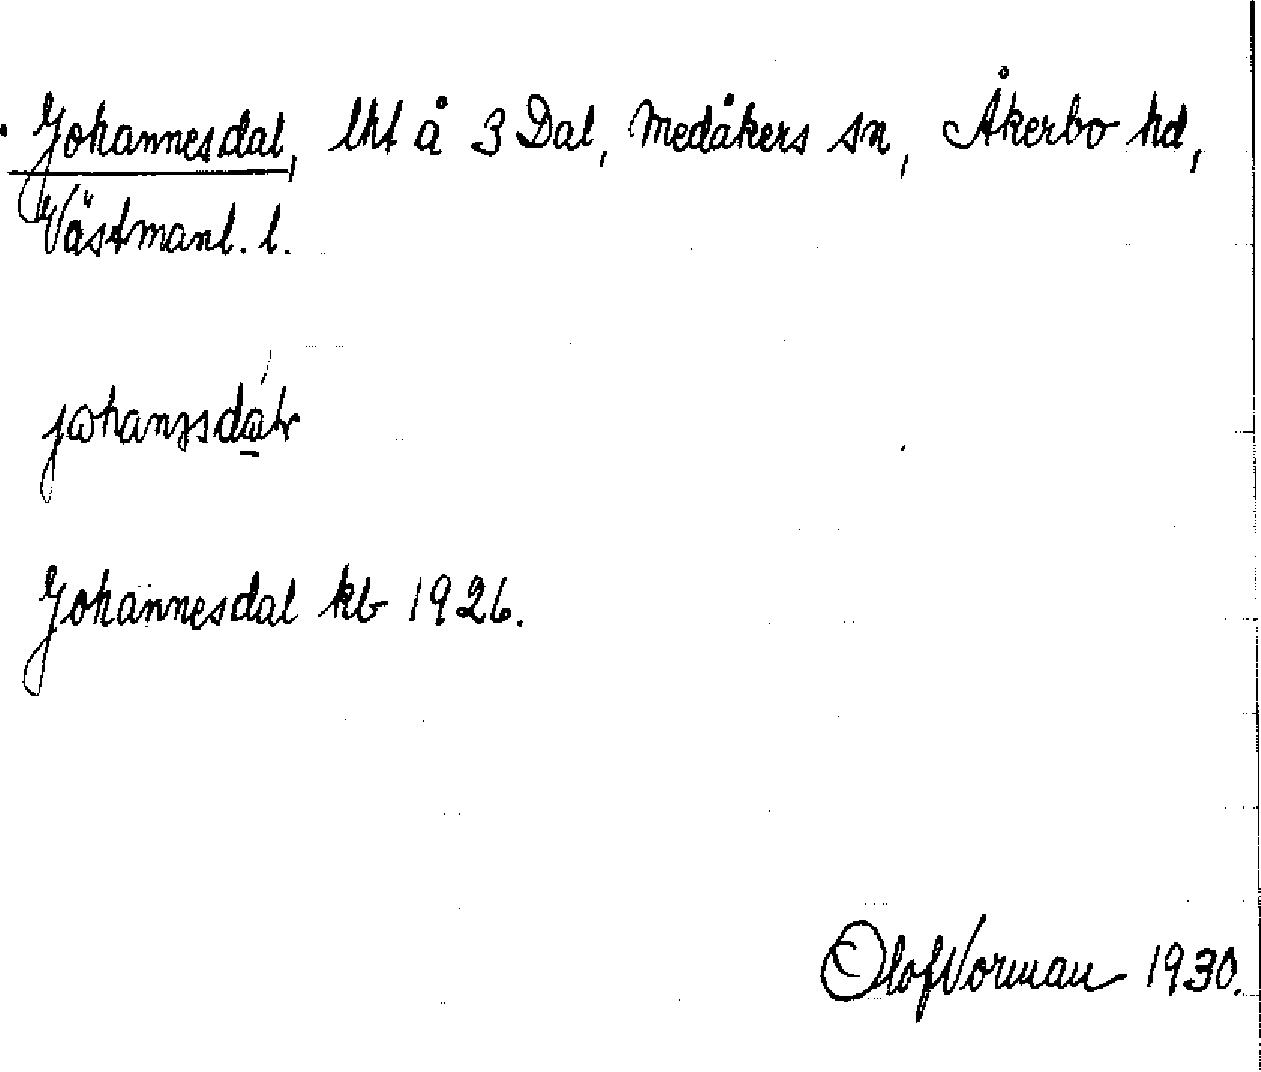 Johannesdal, lht å 3 Dal, Medåkers sn, Åkerbo hd,
Västmanl. l.
Johannesdal kb 1926.
Olof Norman 1930.